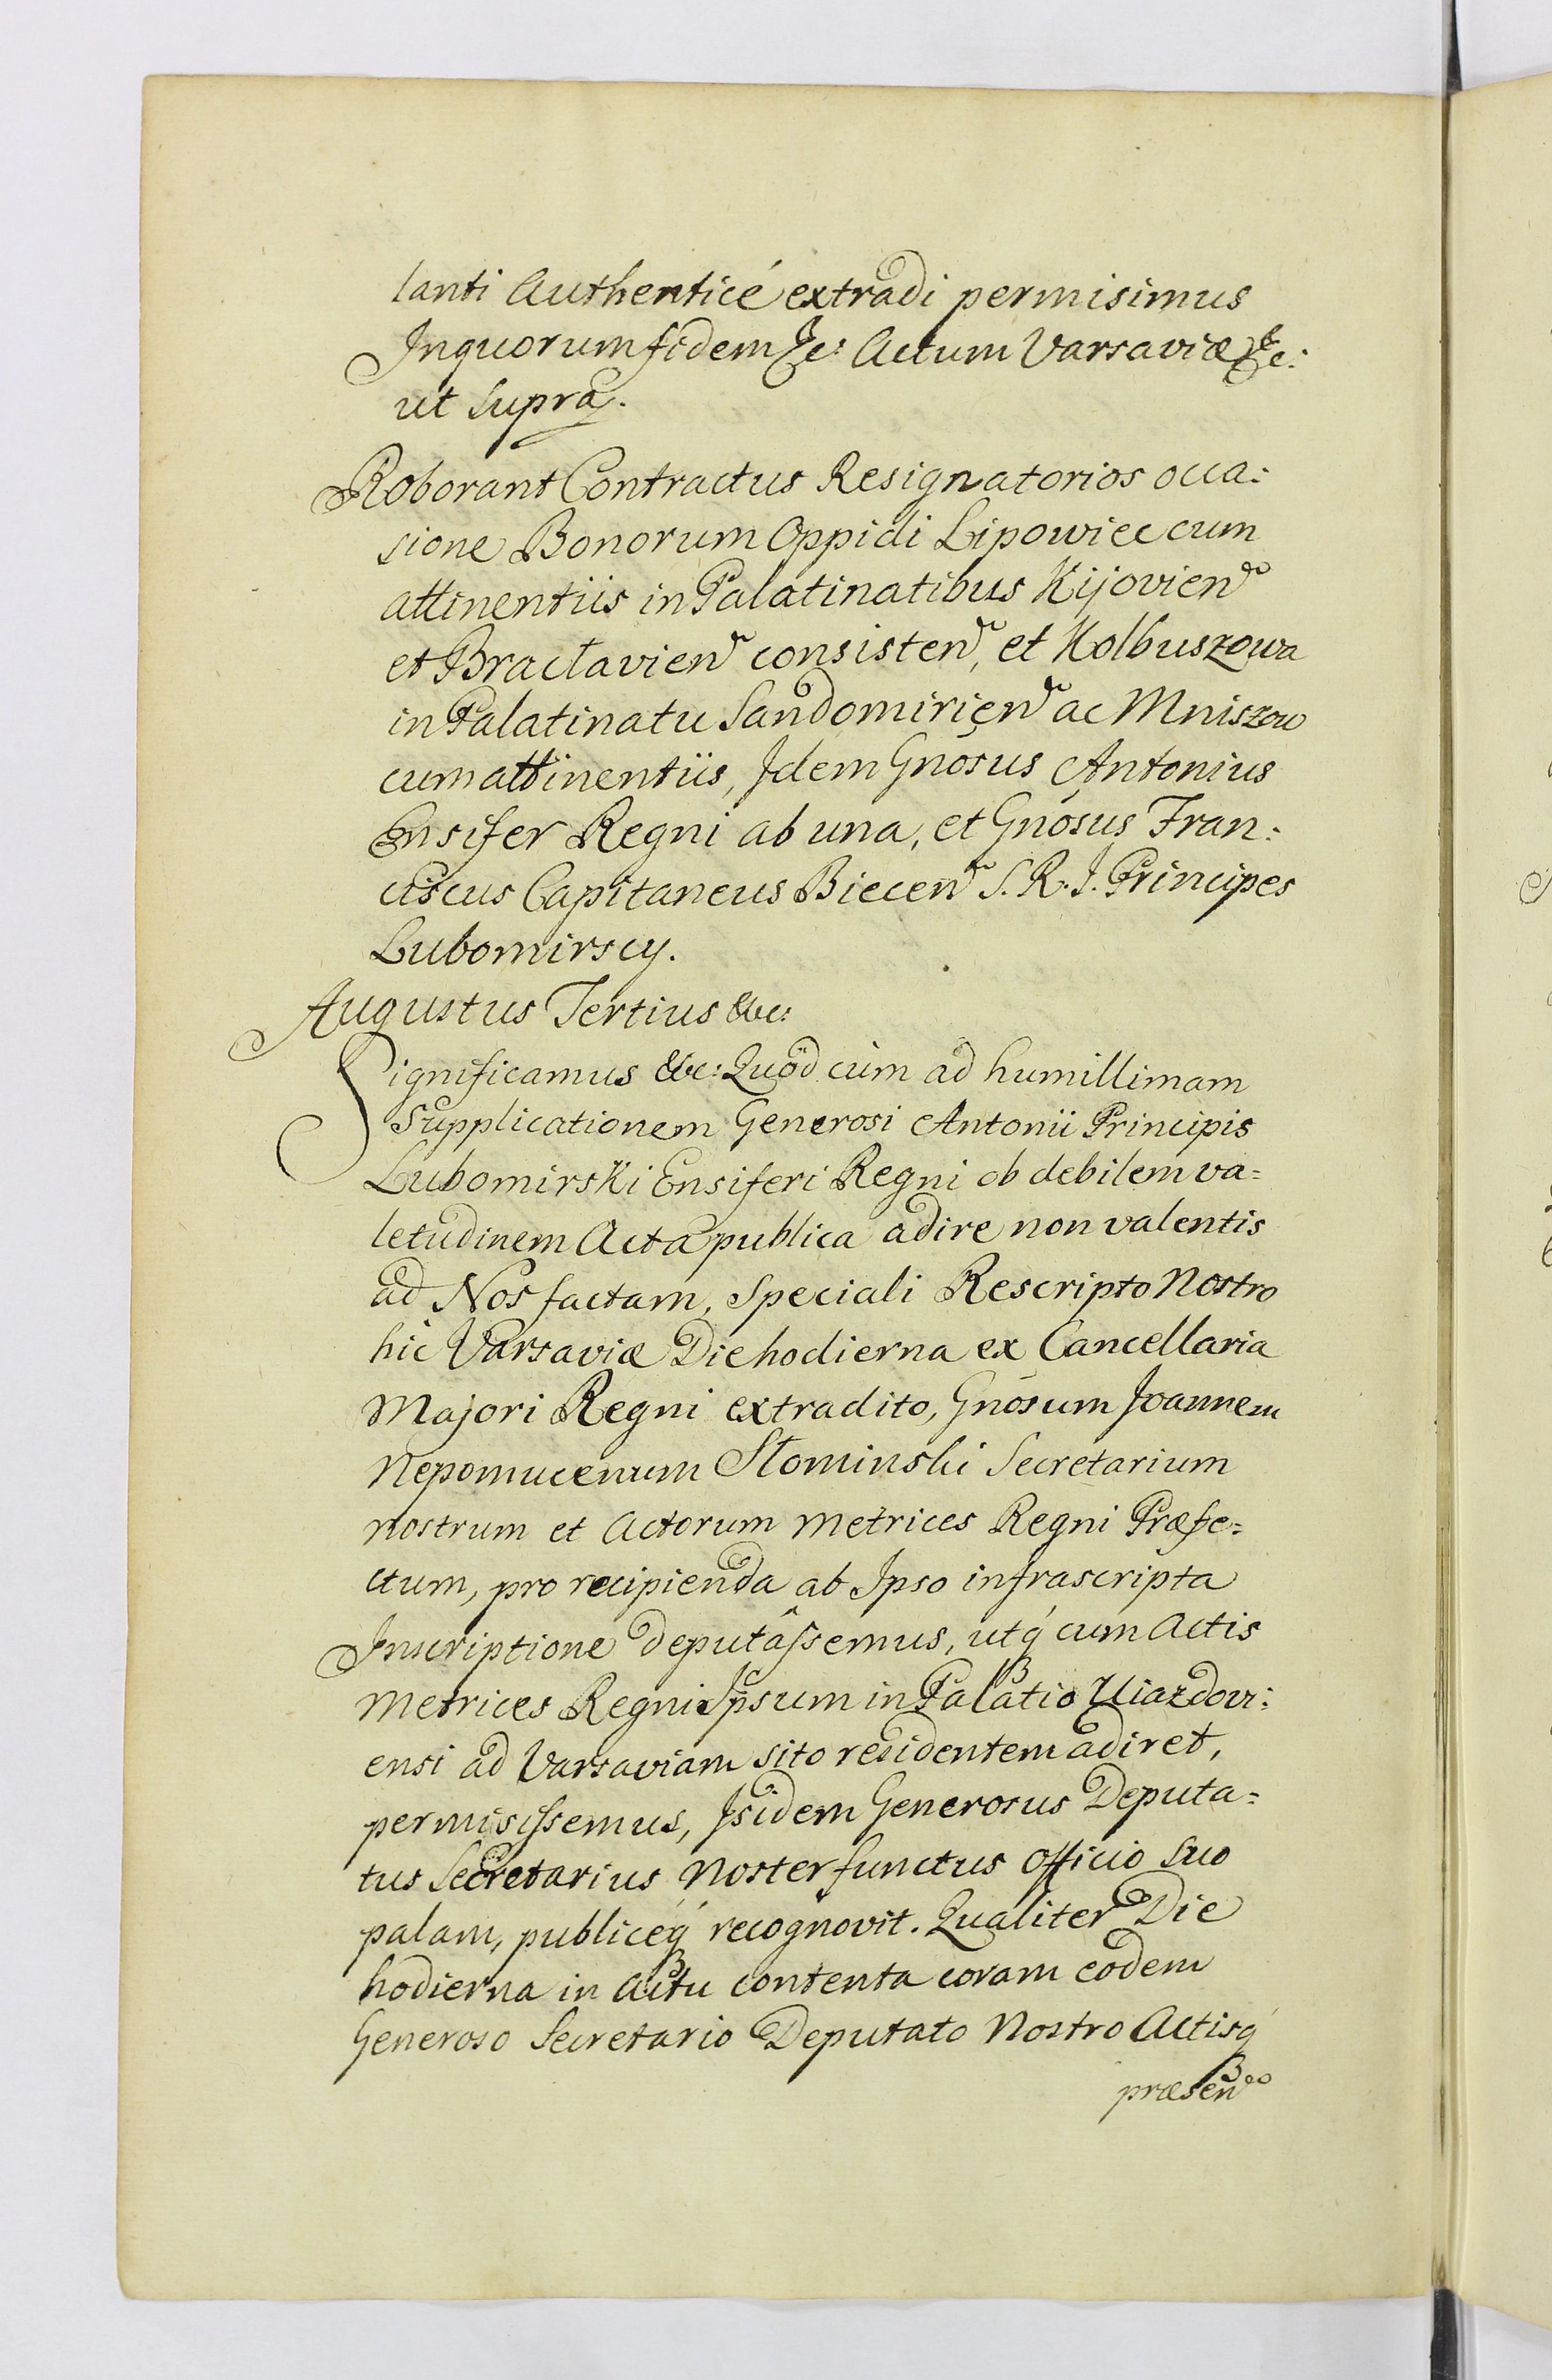 lanti Authenticé extradi permisimus
Inquorum fidem &c: Actum Varsaviæ &c:
ut supra.
Roborant Contractus Resignatorios occa:
sione Bonorum Oppidi Lipowiec cum
attinentiis in Palatinatibus Kijovien
et Braclavien consisten, et Kolbuszowa
in Palatinatu Sandomirien ac Mniszow
cum attinentiis, Idem Gnosus Antonius
Ensifer Regni ab una, et Gnosus Fran:
ciscus Capitaneus Biecen S. R. I. Principes
Lubomirscy.
Augustus Tertius &c:
Significamus &c: Quod cum ad humillimam
Supplicationem Generosi Antonii Principis
Lubomirski Ensiferi Regni ob debilem va=
letudinem Acta publica adire non valentis
ad Nos factam, Speciali Rescripto Nostro
hic Varsaviæ Die hodierna ex Cancellaria
Majori Regni extradito, Gnosum Joannem
Nepomucenum Słominski Secretarium
nostrum et Actorum Metrices Regni Præfe=
ctum, pro recipienda ab Ipso infrascripta
Inscriptione deputâssemus, utq́ cum Actis
Metrices Regni Ipsum in Palatio Uiazdovi:
ensi ad Varsaviam sito residentem adiret,
permisissemus, Isidem Generosus Deputa=
tus Secretarius Noster functus officio suo
palam, publiceq́ recognovit. Qualiter Die
hodierna in Actu contenta coram eodem
Generoso Secretario Deputato Nostro Actisq́
præsen